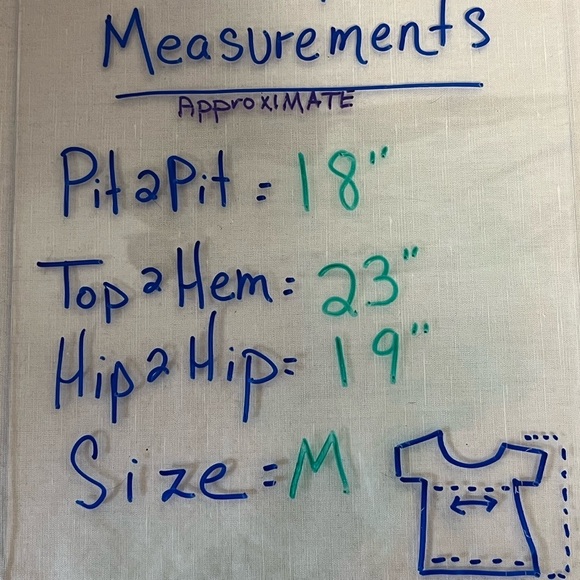 Measurements
ApproxIMATE
Pit2Pit = 18"
Top2Hem = 23"
Hip2Hip = 19"
Size = M